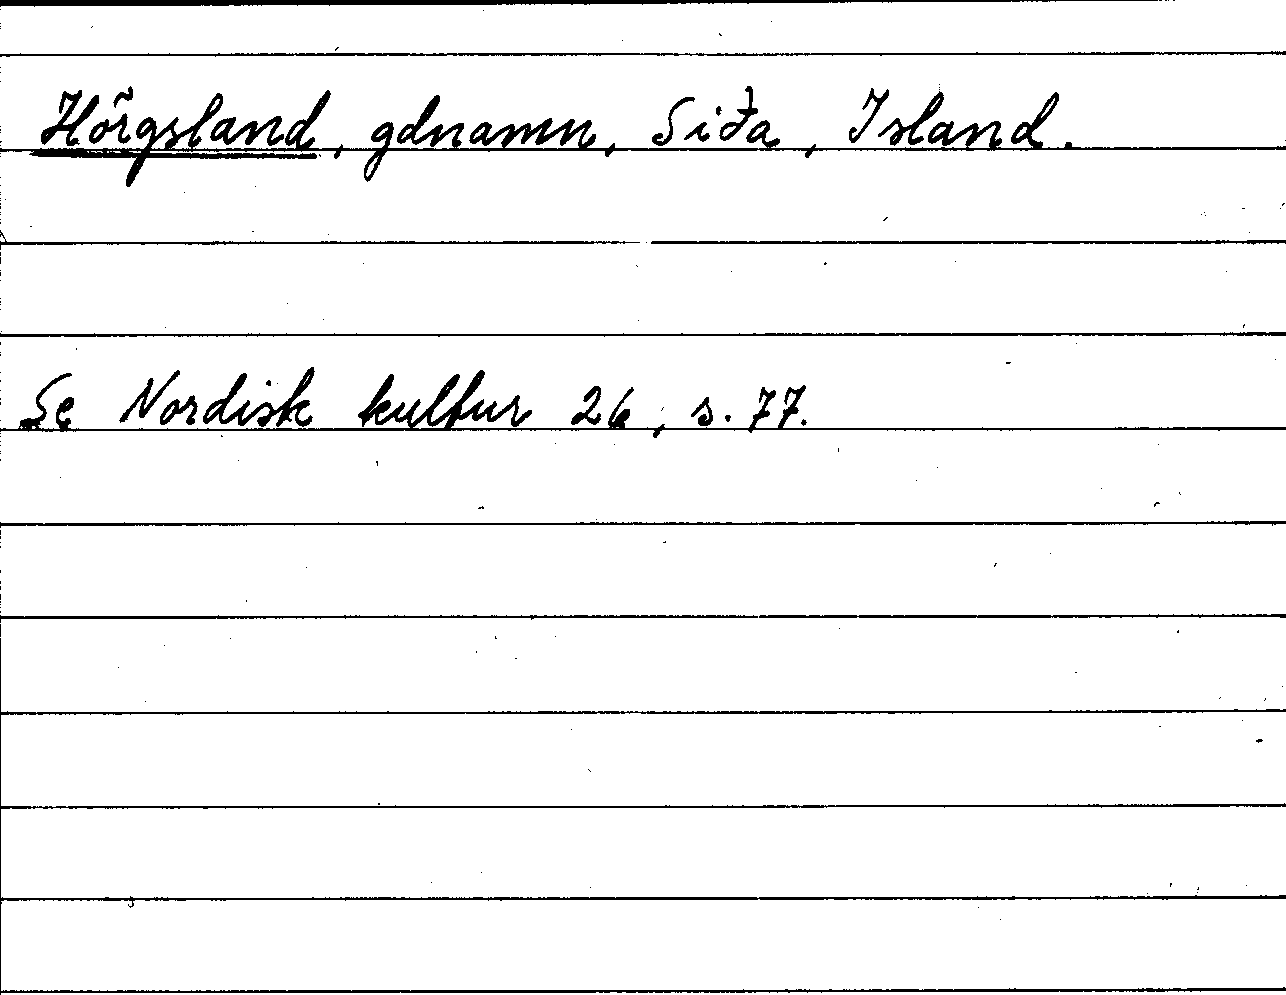 Hörgsland, gdnamn, Siða, Island.
Se Nordisk kultur 26, s. 77.